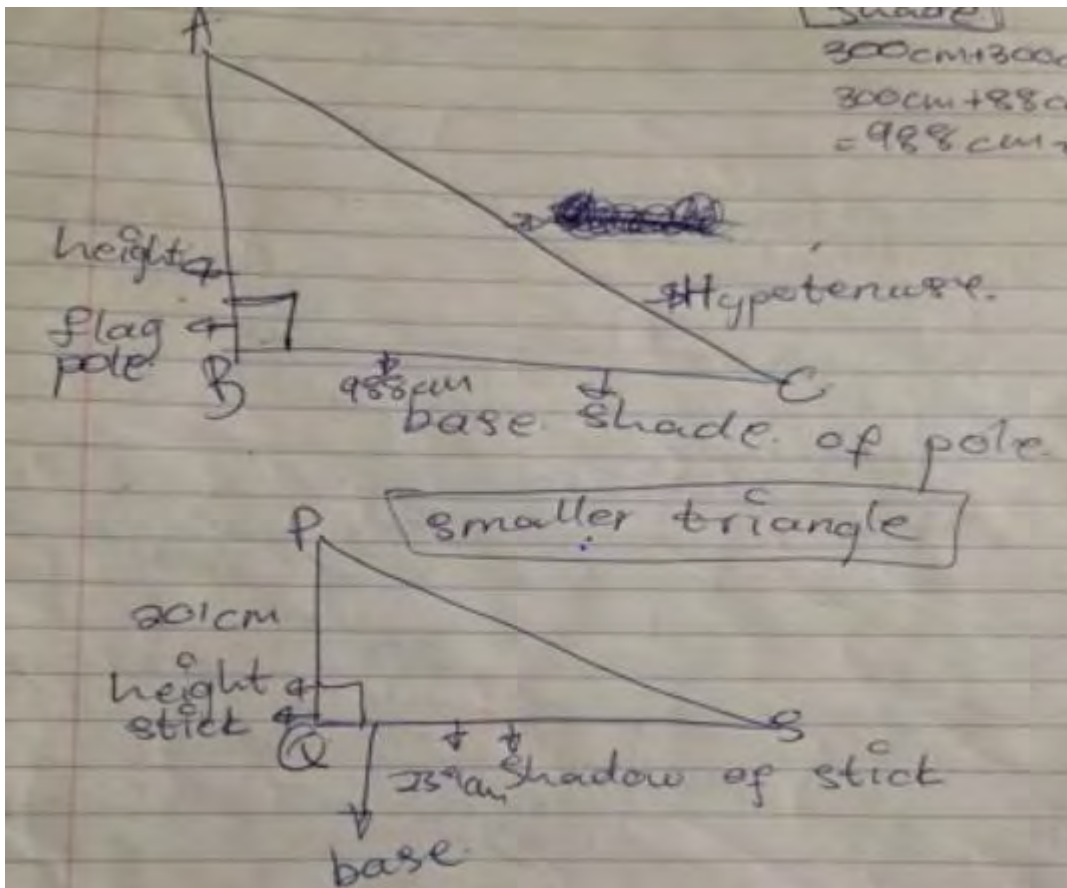 A
shade
300cm+300c
300cm+88c
=988cm
height
Hypotenuse.
flag
pole
B
988cm
C
base. shade. of pole.
smaller triangle
P
201cm
height
stick
Q
S
shadow of stick
base